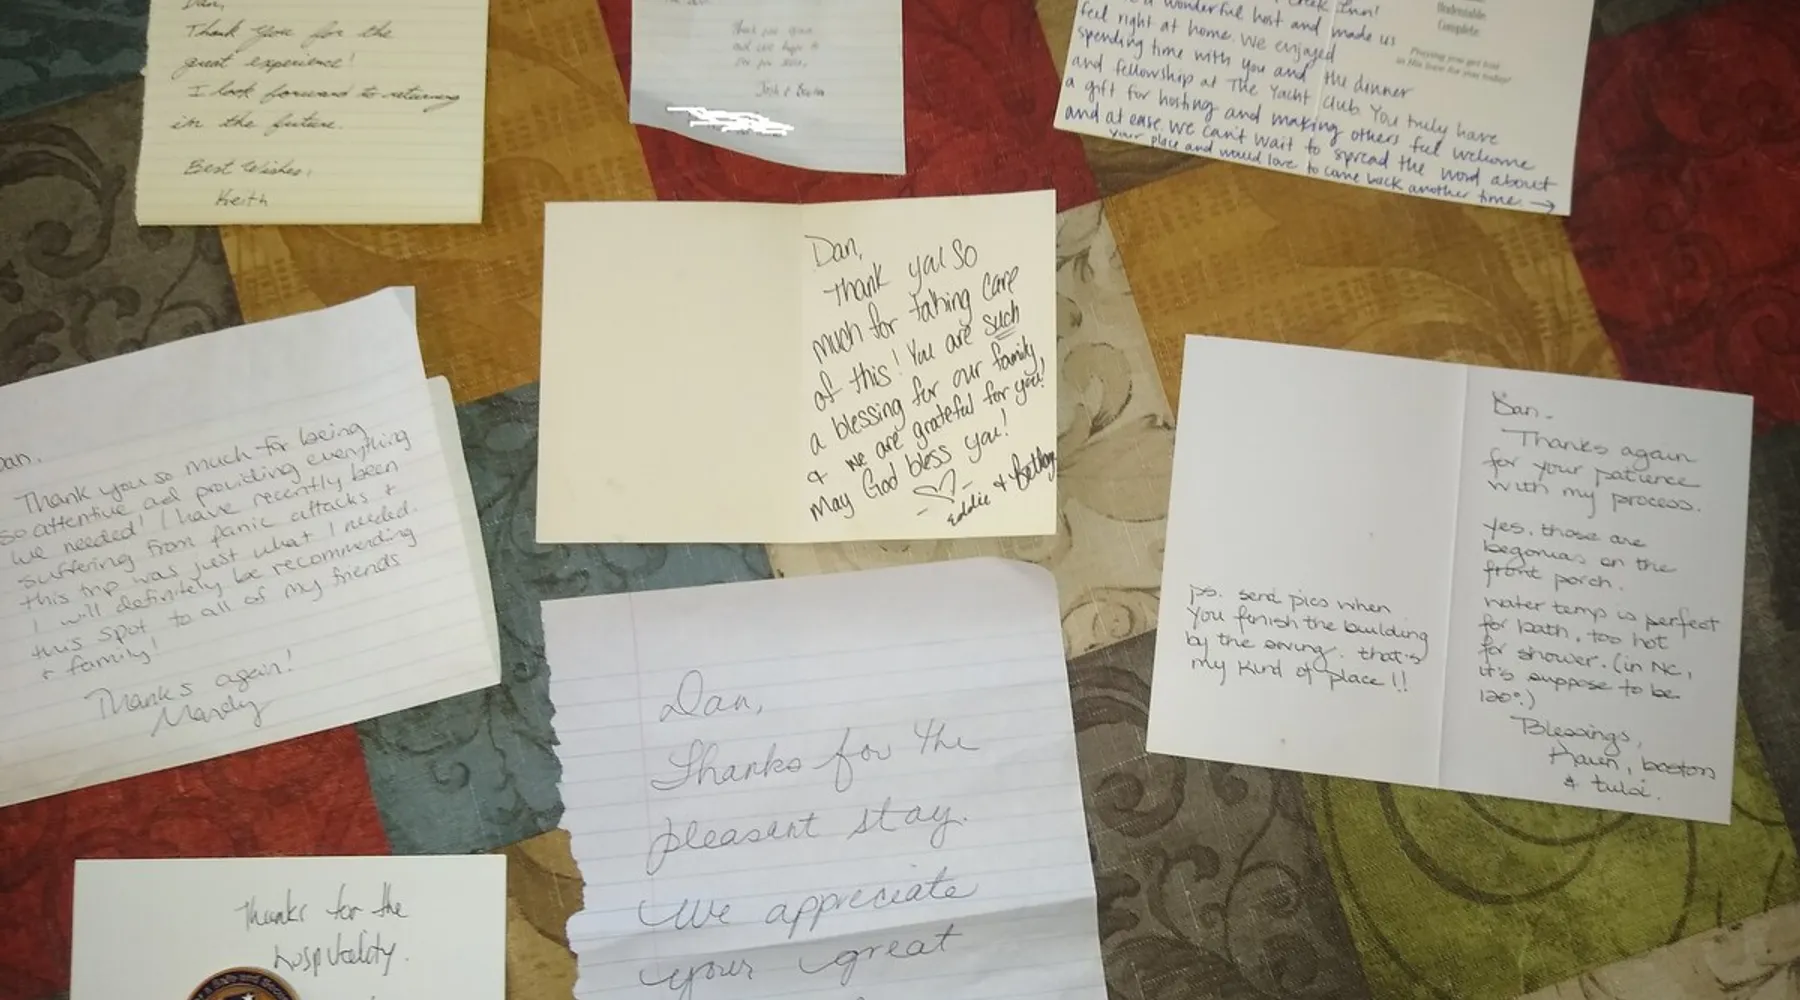 Dan,
Thank you for the
great experience!
I look forward to returning
in the future.
Best Wishes,
Keith
Thank you again
and we hope to
see you soon.
Josh &
Creek Inn!
a wonderful host and made us
feel right at home. We enjoyed
spending time with you and the dinner
and fellowship at The Yacht club. You truly have
a gift for hosting and making others feel welcome
and at ease. We can't wait to spread the word about
your place and would love to come back another time. →
Redeemable.
Complete.
Praying you get lost
in His love for you today!
Dan,
Thank you so
much for taking care
of this! You are such
a blessing for our family,
& we are grateful for you!
May God bless you!
Eddie & Bethany
Dan.
Thank you so much for being
so attentive and providing everything
we needed! I have recently been
suffering from panic attacks &
this trip was just what I needed.
I will definitely be recommending
this spot to all of my friends
& family!
Thanks again!
Mandy
ps. send pics when
you finish the building
by the spring. that's
my kind of place!!
Dan.
Thanks again
for your patience
with my process.
yes, those are
begonias on the
front porch.
water temp is perfect
for bath, too hot
for shower. (in NC,
it's suppose to be
120°.)
Blessings,
Karen, boston
& tulsi.
Dan,
Thanks for the
pleasant stay.
We appreciate
your great
Thanks for the
hospitality.